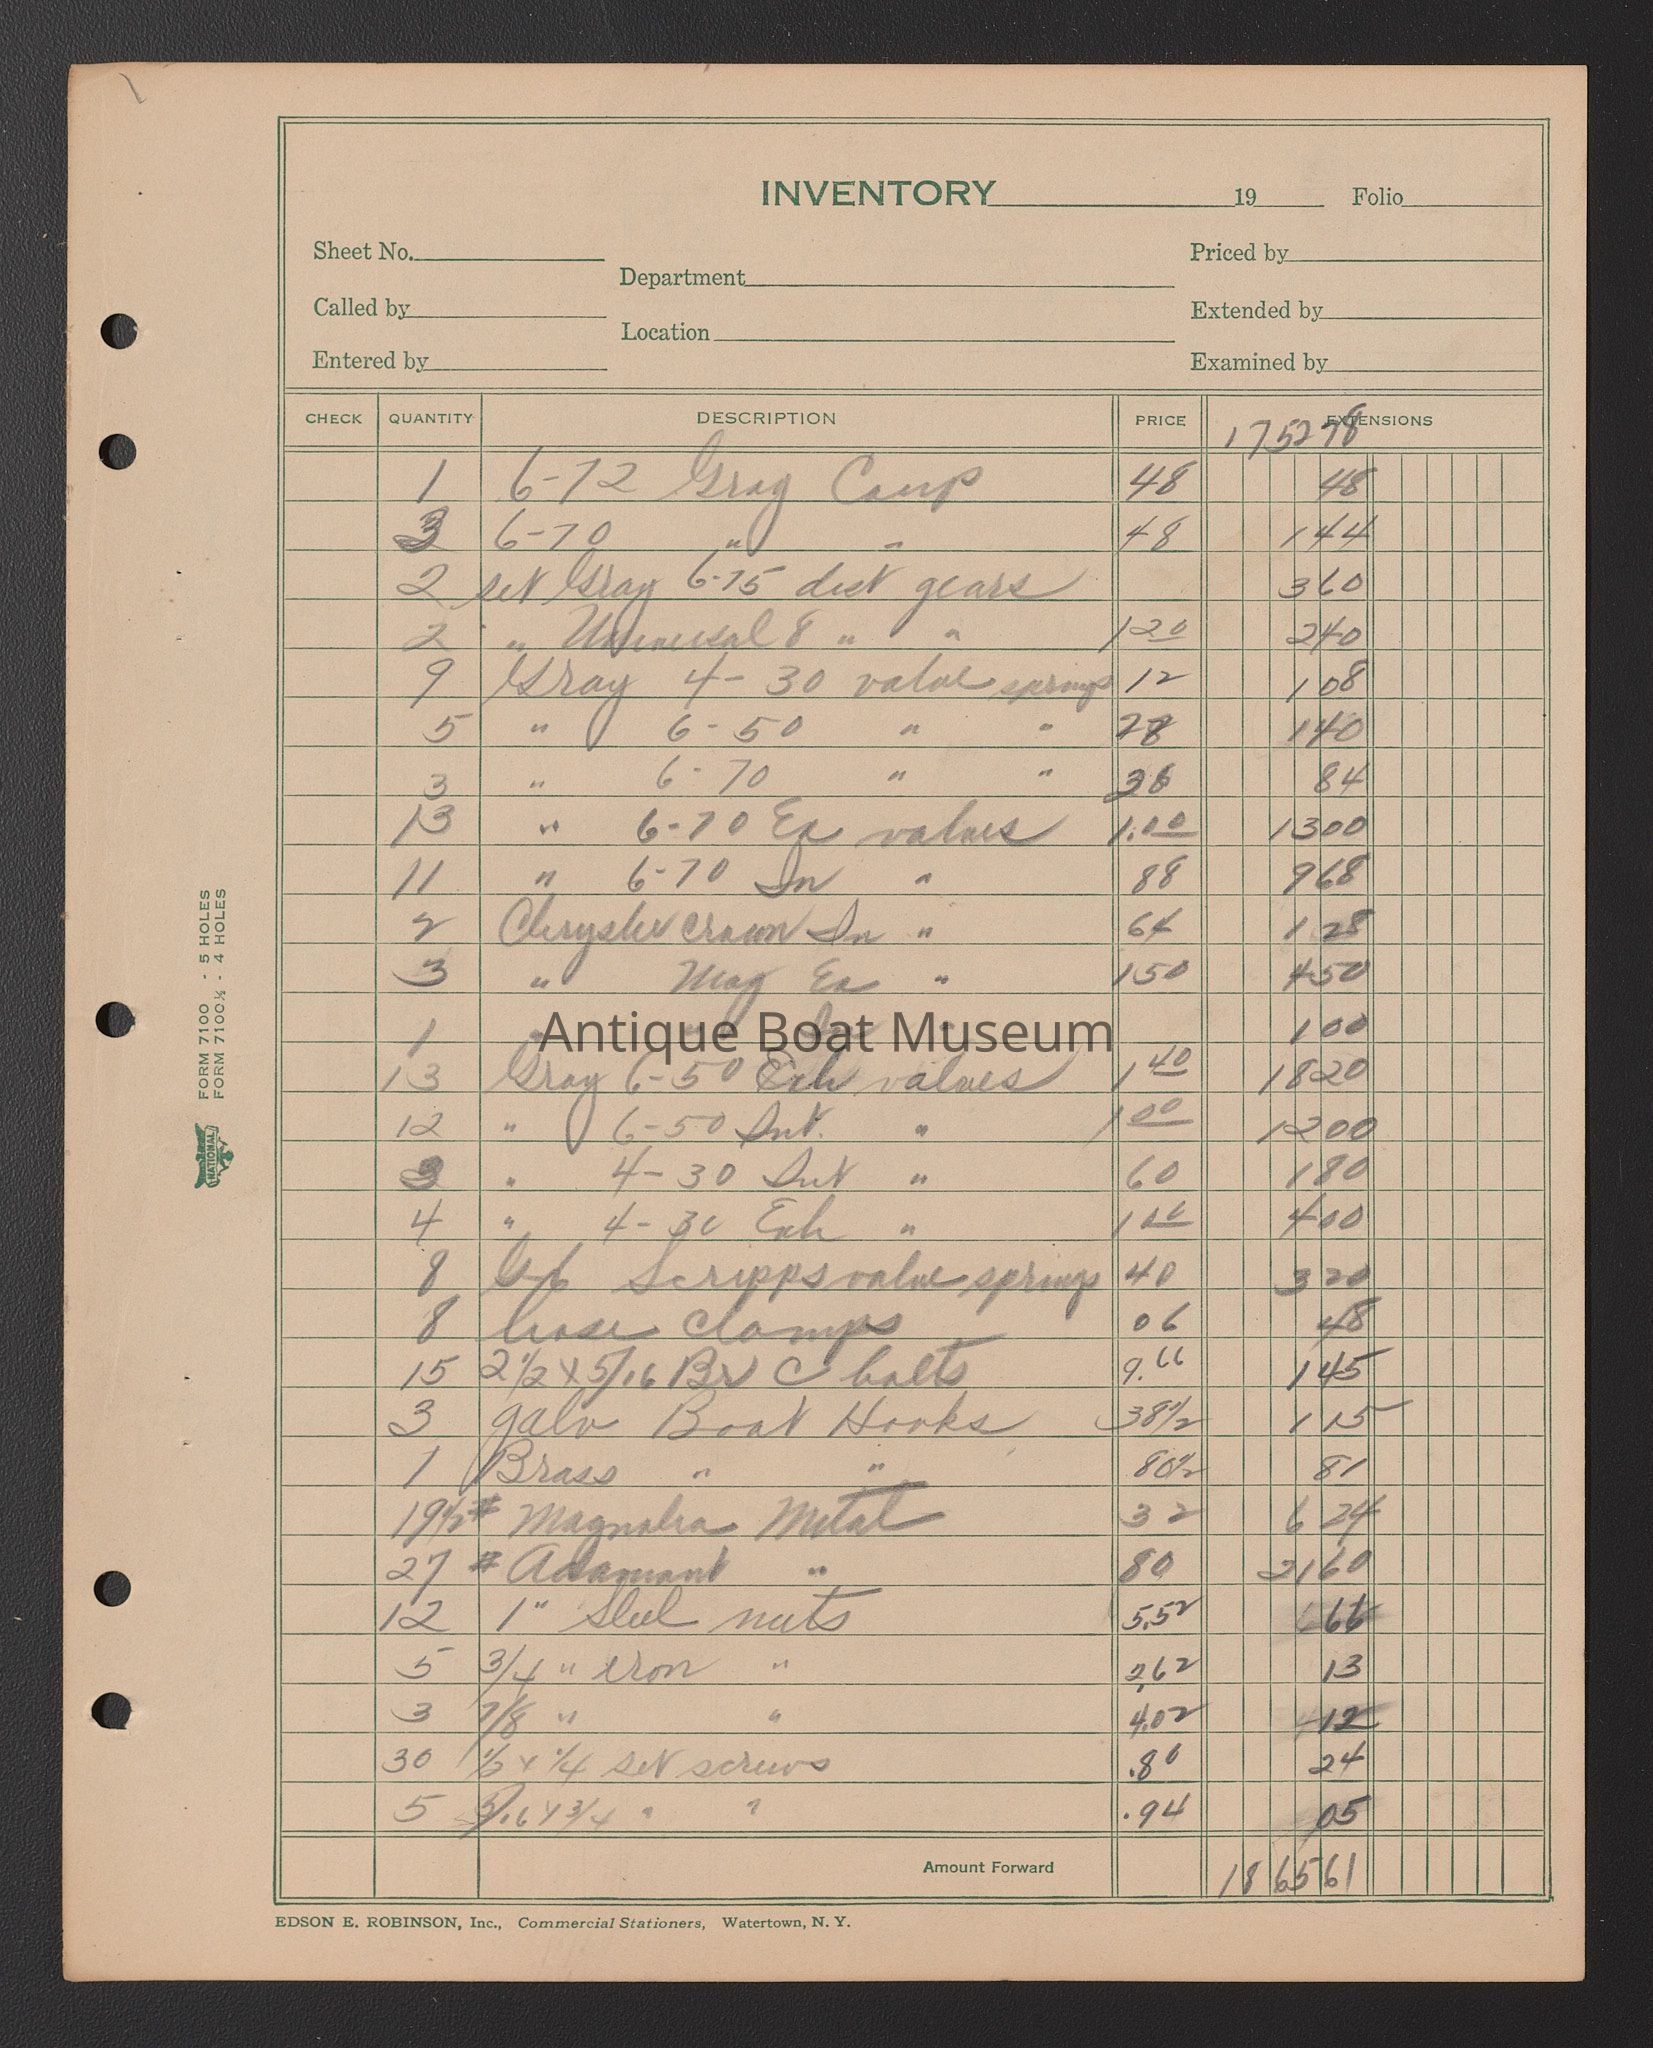 INVENTORY 19 Folio
Sheet No. Priced by
Department
Called by Extended by
Location
Entered by Examined by
CHECK QUANTITY DESCRIPTION PRICE EXTENSIONS
175278
1 6-72 Gray Camp 48 48
3 6-70 " " 48 144
2 set Gray 6-75 dist gears 360
2 " Universal 8 " " 1 20 240
9 Gray 4-30 valve springs 12 108
5 " 6-50 " " 28 140
3 " 6-70 " " 84
13 " 6-70 Ex valves 1.00 1300
11 " 6-70 In " 88 968
2 Chrysler crown In " 64 128
3 " Mag Ex " 150 450
1 " " In " 100
Antique Boat Museum
13 Gray 6-50 Exh valves 1 40 1820
12 " 6-50 Int. " 1 00 1200
3 " 4-30 Int " 60 180
4 " 4-30 Exh " 1 00 400
8 Scripps valve springs 40 320
8 hose clamps 06 48
15 2 1/2 x 5/16 Br C bolts 9.66 145
3 galv Boat Hooks 38 1/2 115
1 Brass " " .80 1/2 81
19 1/2 # Magnolia Metal 32 624
27 # Adamant " 80 2160
12 1" Steel nuts 5.52 66
5 3/4 " iron " 2.62 13
3 7/8 " " 4.02 12
30 1/2 x 1/4 set screws .80 24
5 5/16 x 3/4 " " .94 05
Amount Forward 186561
EDSON E. ROBINSON, Inc., Commercial Stationers, Watertown, N. Y.
FORM 7100 - 5 HOLES
FORM 7100½ - 4 HOLES
NATIONAL